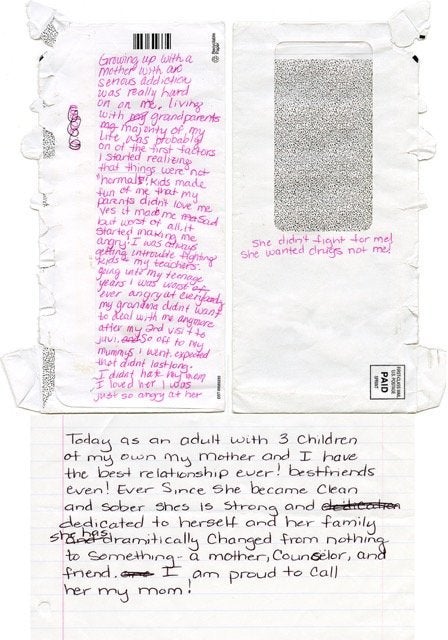 Growing up with a
mother with an
serious addiction
was really hard
on on me. Living
with my grandparents
my majority of my
life was probably
on of the first factors
I started realizing
that things were not
"normal"! Kids made
fun of me that my
parents didn't love me
yes it made me mad sad
but worst of all, it
started making me
angry! I was always
getting introuble fighting
kids & my teachers.
going into my teenage
years I was worst of
ever angry at everybody
my grandma didn't want
to deal with me anymore
after my 2nd visit to
juvi. and So off to my
mummys I went. expected
that didnt last long.
I didnt hate my mom
I loved her I was
just so angry at her
Recyclable
Paper
She didn't fight for me!
She wanted drugs not me!
FIRST-CLASS MAIL
U.S. POSTAGE
PAID
Today as an adult with 3 Children
of my own my mother and I have
the best relationship ever! bestfriends
even! Ever Since She became Clean
and sober shes is Strong and dedication
dedicated to herself and her family
she has
and dramitically Changed from nothing
to Something - a mother, Counselor, and
friend. I am proud to Call
her my mom!